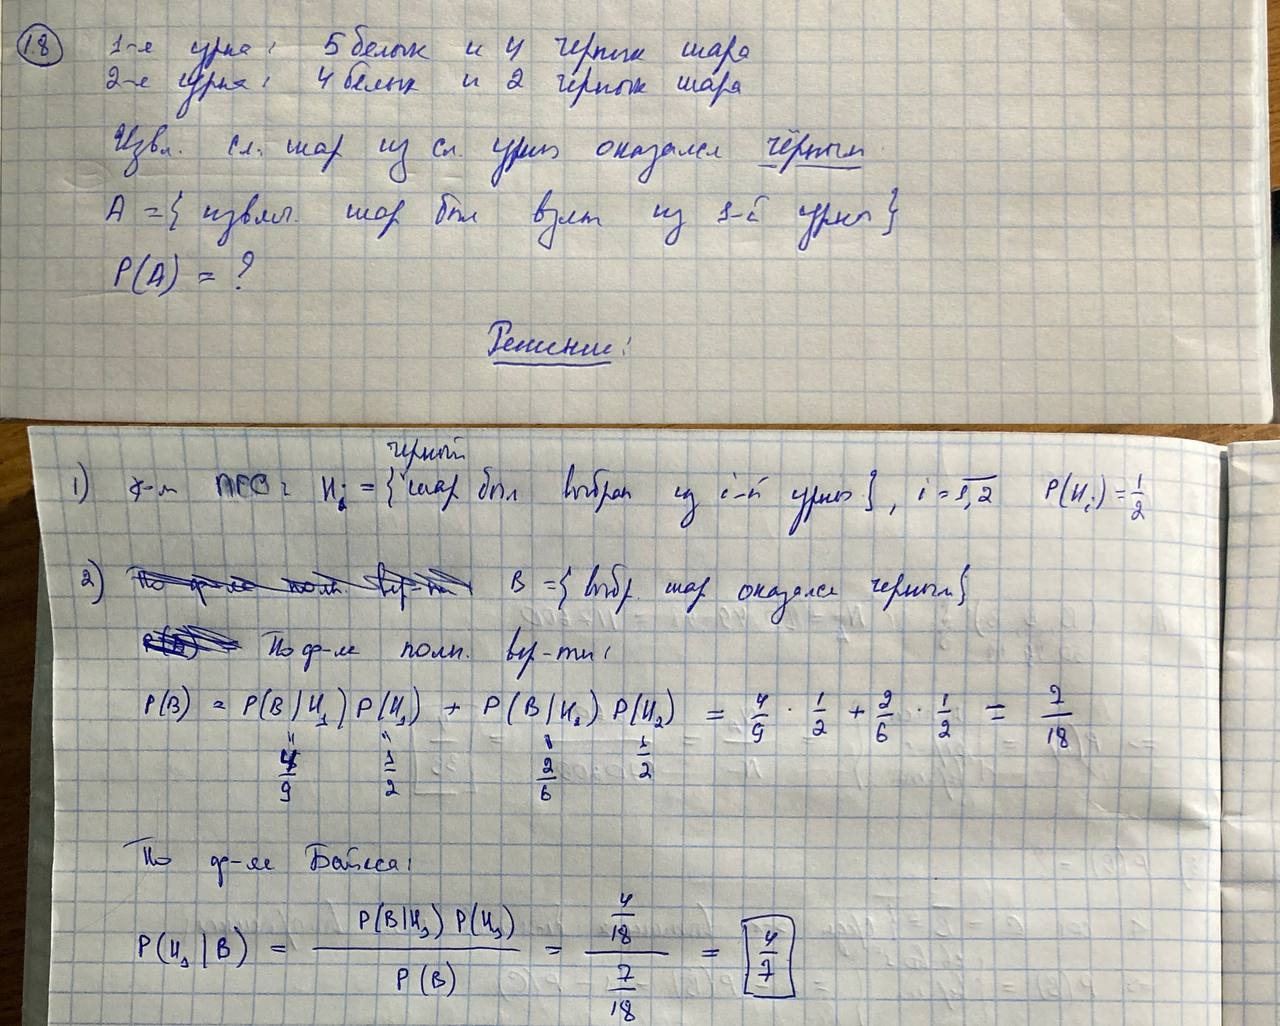 18
1-я урна: 5 белых и 4 черных шара
2-я урна: 4 белых и 2 черных шара
Извл. сл. шар из сл. урны оказался чёрным
A = { извлеч. шар был взят из 1-й урны }
P(A) = ?
Решение:
черный
1) ПГС: H_i = { шар был выбран из i-й урны }, i = 1,2 P(H_i) = 1/2
2) По ф-ле полн. вер-ти B = { выбр. шар оказался черным }
P(B) По ф-ле полн. вер-ти:
P(B) = P(B|H_1) P(H_1) + P(B|H_2) P(H_2) = 4/9 · 1/2 + 2/6 · 1/2 = 7/18
4/9 1/2 2/6 1/2
По ф-ле Байеса:
P(H_1|B) = P(B|H_1) P(H_1) / P(B) = 4/18 / 7/18 = 4/7